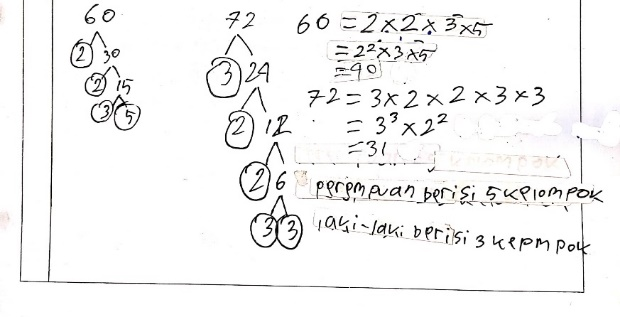 60
2 30
2 15
3 5
72
3 24
2 12
2 6
3 3
60 = 2x2x3x5
= 2²x3x5
= 90
72 = 3x2x2x3x3
= 3³x2²
= 31
perempuan berisi 5 kelompok
laki-laki berisi 3 kepmpok